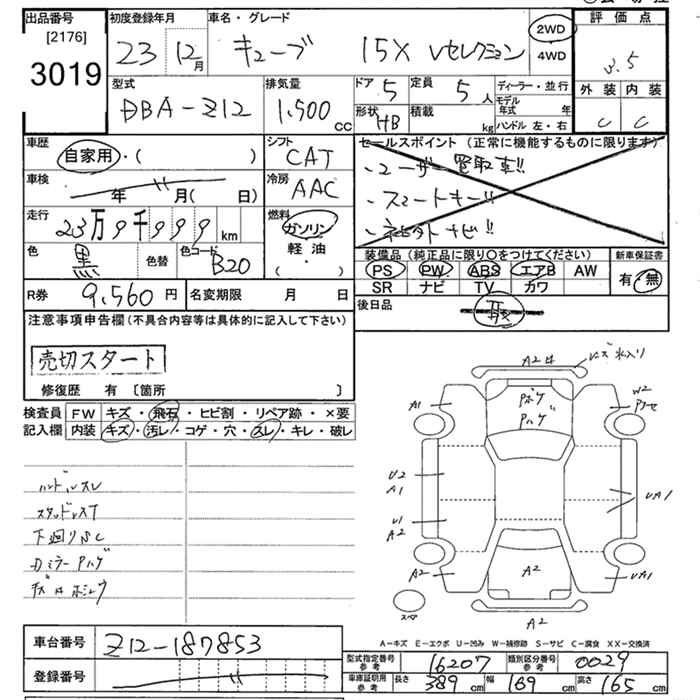 出品番号
[2176]
3019
初度登録年月
23 12月
車名・グレード
キューブ 15X Vセレクション
2WD
4WD
評価点
3.5
外装 内装
C C
型式
DBA-Z12
排気量
1,500 cc
ドア 5
定員 5 人
形状 HB
積載 kg
ディーラー・並行
モデル年式 年
ハンドル 左・右
車歴
自家用・( )
車検
年 月( 日)
走行
23万9千999 km
色 黒 色替 色コード B20
シフト
CAT
冷房
AAC
燃料
ガソリン
軽油
( ・ )
セールスポイント (正常に機能するものに限ります)
・ユーザー買取車!!
・スマートキー!!
装備品 (純正品に限り○をつけてください)
PS PW ABS エアB AW
SR ナビ TV カワ
新車保証書
有・無
R券 9,560 円
名変期限 月 日
後日品
取
注意事項申告欄 (不具合内容等は具体的に記入して下さい)
売切スタート
修復歴 有 〔箇所 〕
検査員記入欄
FW キズ・飛石・ヒビ割・リペア跡・×要
内装 キズ・汚レ・コゲ・穴・スレ・キレ・破レ
ハンドルスレ
下廻りSC
A2
A1
W2
U2
A1
U1
A2
UA1
A2
A2
UA1
A2
スペア
A-キズ E-エクボ U-凹み W-補修跡 S-サビ C-腐食 XX-交換済
車台番号 Z12-187853
登録番号
型式指定番号 参考 16207
類別区分番号 参考 0029
車庫証明用 参考 長さ 389 cm 幅 169 cm 高さ 165 cm